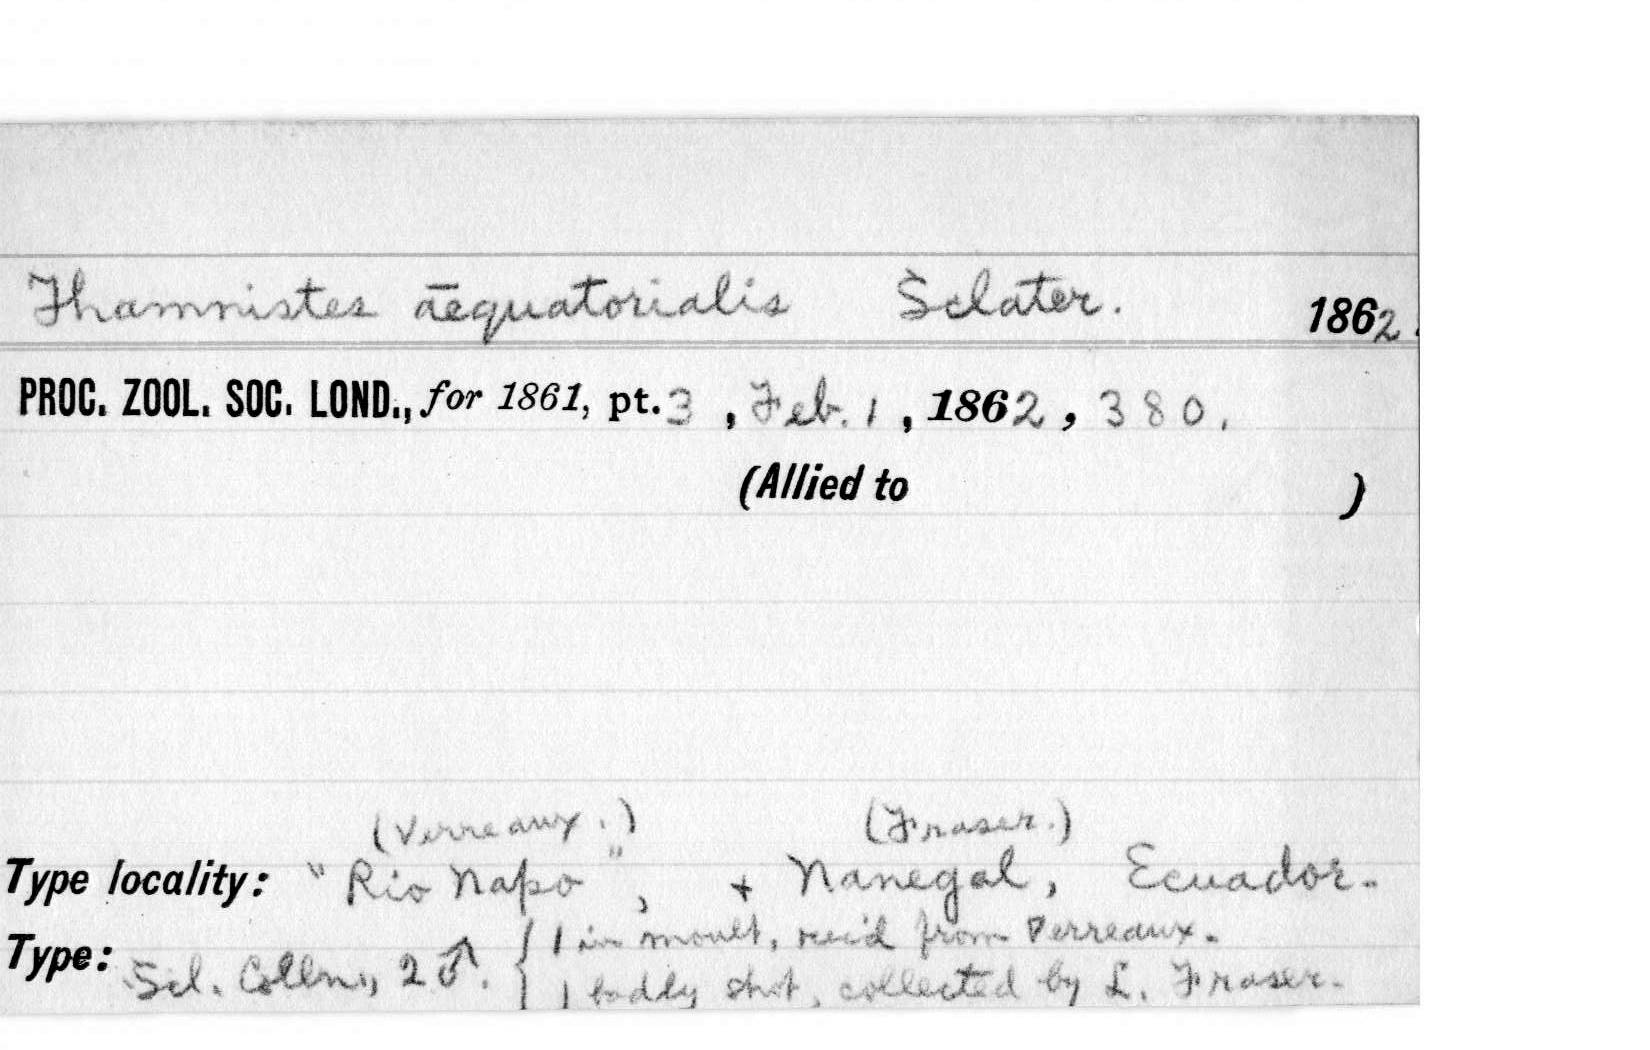 Thamnistes āequatorialis Sclater. 1862.
PROC. ZOOL. SOC. LOND., for 1861, pt. 3, Feb. 1, 1862, 380.
(Allied to )
(Verreaux.) (Fraser.)
Type locality: "Rio Napo", + Nanegal, Ecuador.
Type: Scl. Colln., 2♂. { 1 in moult, rec'd from Verreaux.
1 badly shot, collected by L. Fraser.